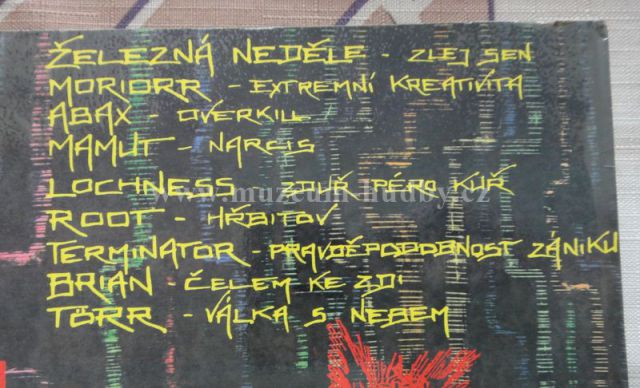 ŽELEZNÁ NEDĚLE - ZLEJ SEN
MORIORR - EXTREMNÍ KREATIVITA
ABAX - OVERKILL
MAMUT - NARCIS
LOCHNESS - ZDUŘ PÉRO KUŘ
www.muzeum-hudby.cz
ROOT - HŘBITOV
TERMINATOR - PRAVDĚPODOBNOST ZÁNIKU
BRIAN - ČELEM KE ZDI
TÖRR - VÁLKA S NEBEM